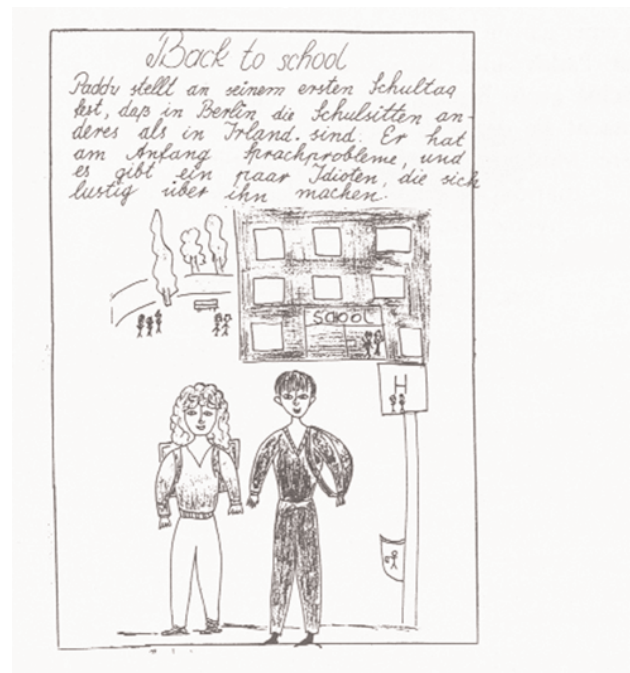 Back to school
Paddv stellt an seinem ersten Schultag
fest, daß in Berlin die Schulsitten an-
deres als in Irland. sind. Er hat
am Anfang Sprachprobleme, und
es gibt ein paar Idioten, die sich
lustig über ihn machen.
SCHOOL
H